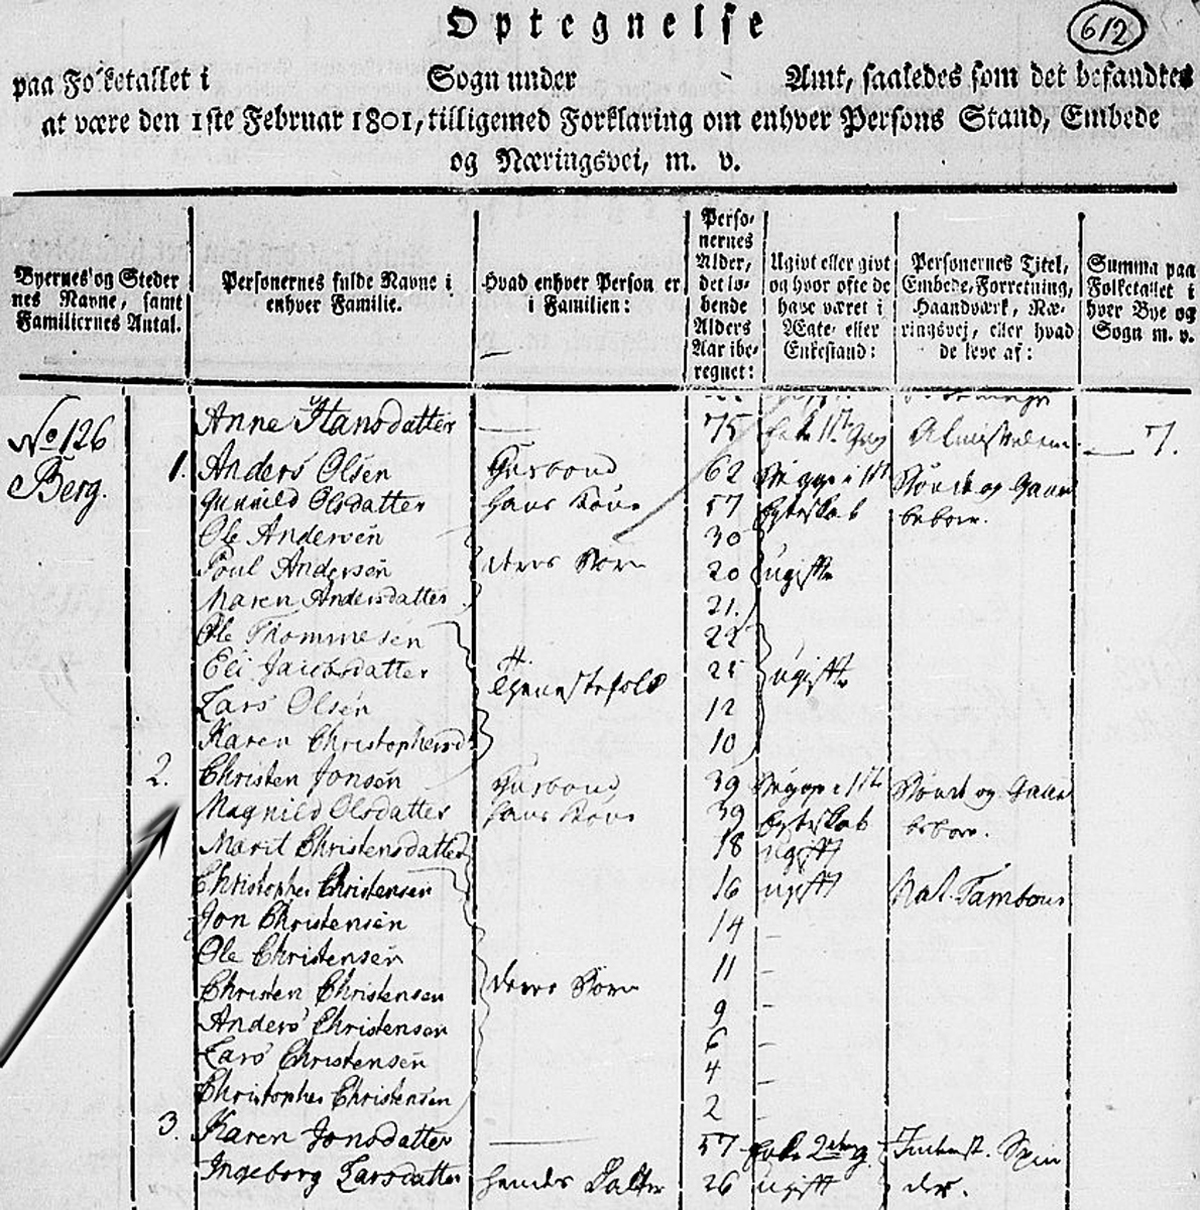 Optegnelse
612
paa Folketallet i Sogn under Amt, saaledes som det befandtes
at være den 1ste Februar 1801, tilligemed Forklaring om enhver Persons Stand, Embede
og Næringsvei, m. v.
Byernes og Steder
nes Navne, samt
Familiernes Antal.
Personernes fulde Navne i
enhver Familie.
Hvad enhver Person er
i Familien:
Perso-
nernes
Alder,
det lø-
bende
Alders
Aar ibe-
regnet:
Ugivt eller givt
og hvor ofte de
have været i
Ægte- eller
Enkestand:
Personernes Titel,
Embede, Forretning,
Haandværk, Næ-
ringsvej, eller hvad
de leve af:
Summa paa
Folketallet i
hver Bye og
Sogn m. v.
Anne Hansdatter — 75 7.
No 126
Berg.
1. Anders Olsen Husbond 62
Gunnild Olsdatter hans Kone 57
Ole Andersen 30
Poul Andersen deres Børn 20 ugifte
Maren Andersdatter 21.
Ole Thommesen 22
Eli Jacobsdatter 25 ugifte
Tjenestefolk
Lars Olsen 12
Karen Christophersd 10
2. Christen Jonsen Husbond 39
Magnild Olsdatter hans Kone 39
Marit Christensdatter 18 ugift
Christopher Christensen 16 ugift Nat. Tambour
Jon Christensen 14 –
Ole Christensen 11 –
Christen Christensen deres Børn 9 –
Anders Christensen 6 –
Lars Christensen 4 –
Christopher Christensen 2 –
3. Karen Jonsdatter — 57
Ingeborg Larsdatter hendes Datter 26 ugift